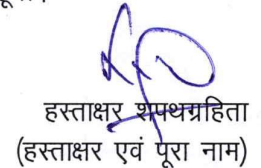 हस्ताक्षर शपथग्रहिता
(हस्ताक्षर एवं पूरा नाम)